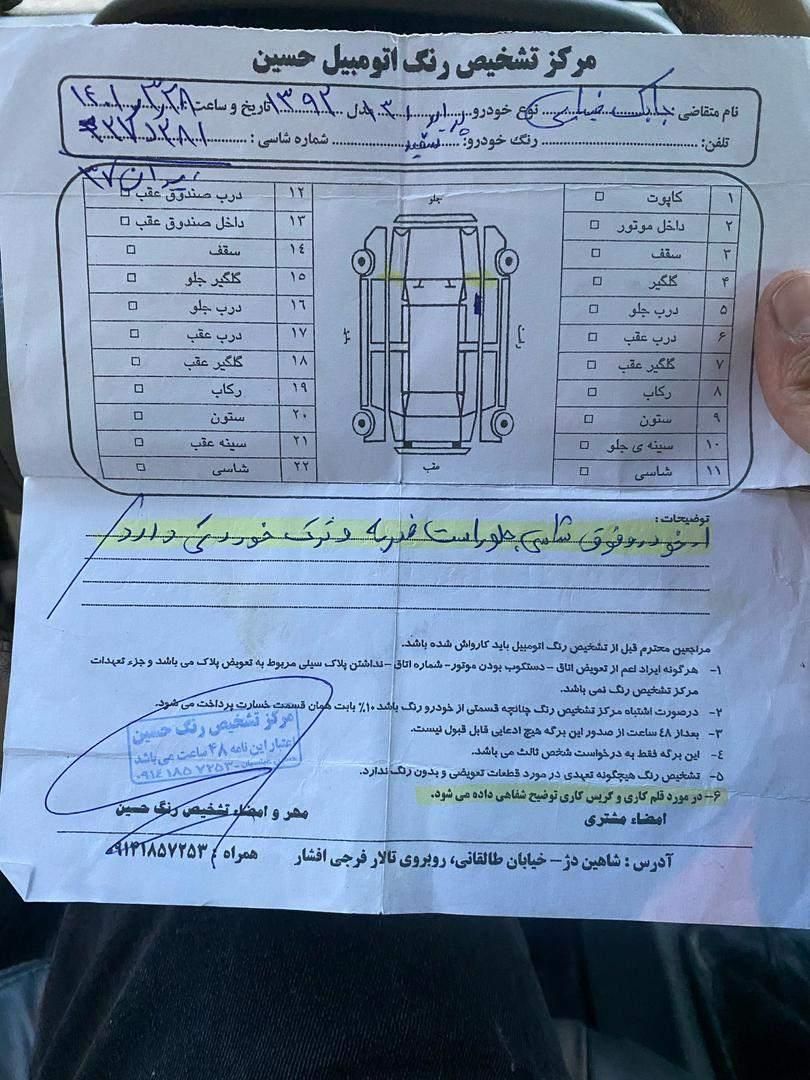 مرکز تشخیص رنگ اتومبیل حسین
نام متقاضی: نوع خودرو مدل ۱۳۹۲ تاریخ و ساعت:
تلفن: رنگ خودرو: سفید شماره شاسی:
۱ کاپوت
۲ داخل موتور
۳ سقف
۴ گلگیر
۵ درب جلو
۶ درب عقب
۷ گلگیر عقب
۸ رکاب
۹ ستون
۱۰ سینه ی جلو
۱۱ شاسی
جلو
عقب
۱۲ درب صندوق عقب
۱۳ داخل صندوق عقب
۱۴ سقف
۱۵ گلگیر جلو
۱۶ درب جلو
۱۷ درب عقب
۱۸ گلگیر عقب
۱۹ رکاب
۲۰ ستون
۲۱ سینه عقب
۲۲ شاسی
توضیحات:
خودرو فوق شاسی جلو راست ضربه و ترک خوردگی دارد
مراجعین محترم قبل از تشخیص رنگ اتومبیل باید کارواش شده باشد.
۱- هرگونه ایراد اعم از تعویض اتاق - دستکوب بودن موتور- شماره اتاق - نداشتن پلاک سیلی مربوط به تعویض پلاک می باشد و جزء تعهدات
مرکز تشخیص رنگ نمی باشد.
۲- درصورت اشتباه مرکز تشخیص رنگ چنانچه قسمتی از خودرو رنگ باشد ۱۰٪ بابت همان قسمت خسارت پرداخت می شود.
۳- بعداز ۴۸ ساعت از صدور این برگه هیچ ادعایی قابل قبول نیست.
۴- این برگه فقط به درخواست شخص ثالث می باشد.
۵- تشخیص رنگ هیچگونه تعهدی در مورد قطعات تعویضی و بدون رنگ ندارد.
۶- در مورد قلم کاری و کریس کاری توضیح شفاهی داده می شود.
مرکز تشخیص رنگ حسین
اعتبار این نامه ۴۸ ساعت می باشد
۰۹۱۴ ۱۸۵ ۷۲۵۳
امضاء مشتری
مهر و امضاء تشخیص رنگ حسین
آدرس : شاهین دژ - خیابان طالقانی، روبروی تالار فرجی افشار
همراه : ۰۹۱۴۱۸۵۷۲۵۳